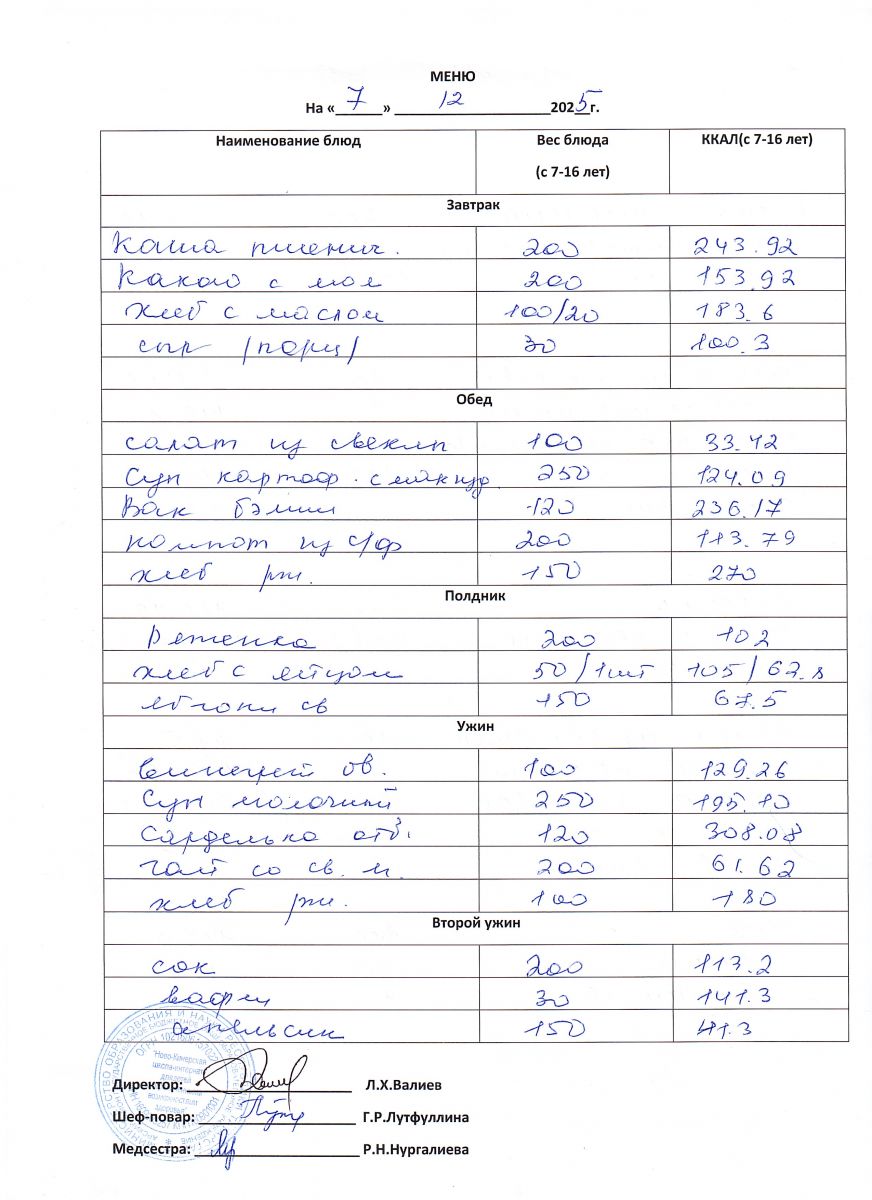 МЕНЮ
На « 7 » 12 2025 г.
Наименование блюд Вес блюда (с 7-16 лет) ККАЛ(с 7-16 лет)
Завтрак
Каша пшенич. 200 243.92
Какао с мол 200 153.92
хлеб с маслом 100/20 183.6
сыр /порц/ 30 100.3
Обед
салат из свеклы 100 33.42
Суп картоф. с мак изд. 250 124.09
Вак бэлиш 120 236.17
компот из с/ф 200 113.79
хлеб рж. 150 270
Полдник
Ряженка 200 102
хлеб с яйцом 50/1шт 105/62.8
яблоки св 150 67.5
Ужин
винегрет ов. 100 129.26
Суп молочный 250 195.10
Сарделька отв. 120 308.08
чай со св. м. 200 61.62
хлеб рж. 100 180
Второй ужин
сок 200 113.2
вафли 30 141.3
апельсин 150 41.3
Директор: Л.Х.Валиев
Шеф-повар: Г.Р.Лутфуллина
Медсестра: Р.Н.Нургалиева